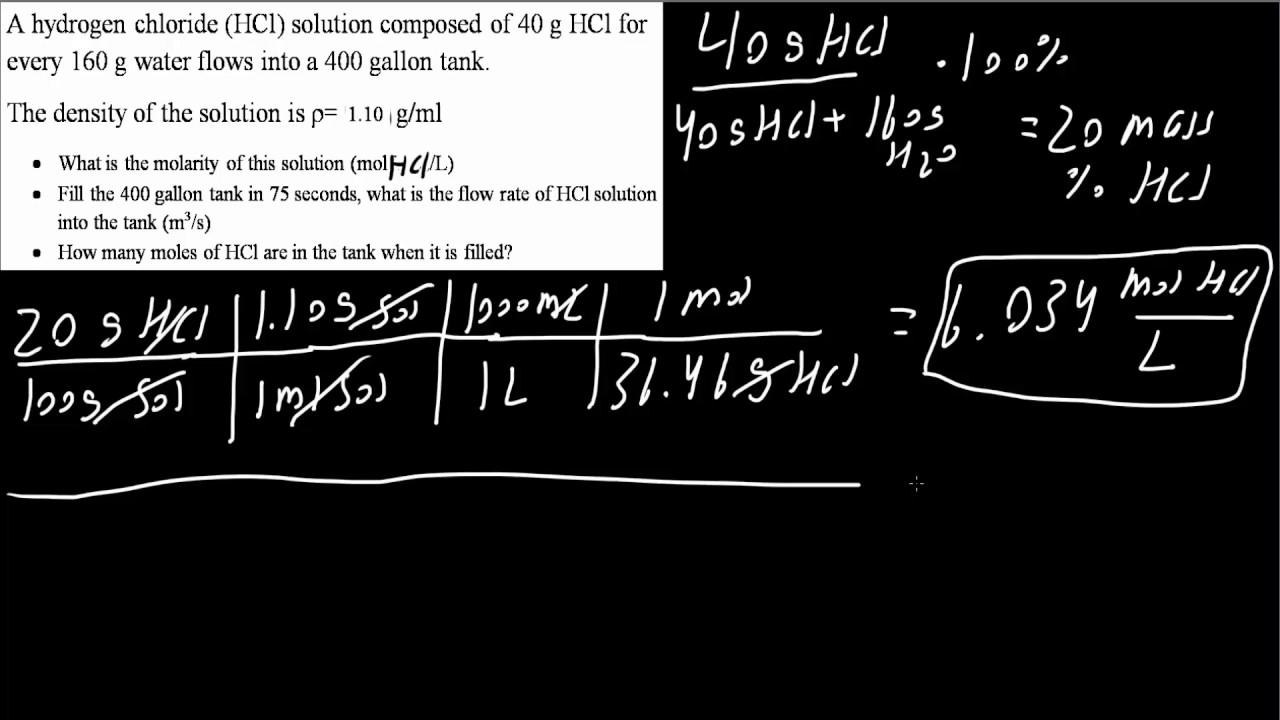 A hydrogen chloride (HCl) solution composed of 40 g HCl for
every 160 g water flows into a 400 gallon tank.
The density of the solution is ρ= 1.10 g/ml
• What is the molarity of this solution (mol HCl/L)
• Fill the 400 gallon tank in 75 seconds, what is the flow rate of HCl solution
into the tank (m³/s)
• How many moles of HCl are in the tank when it is filled?
40g HCl
· 100%
40g HCl + 160g
H2O
= 20 mass
% HCl
20 g HCl | 1.10g sol | 1000mL | 1 mol
100g sol | 1ml sol | 1L | 36.46g HCl
= 6.034 mol HCl
L